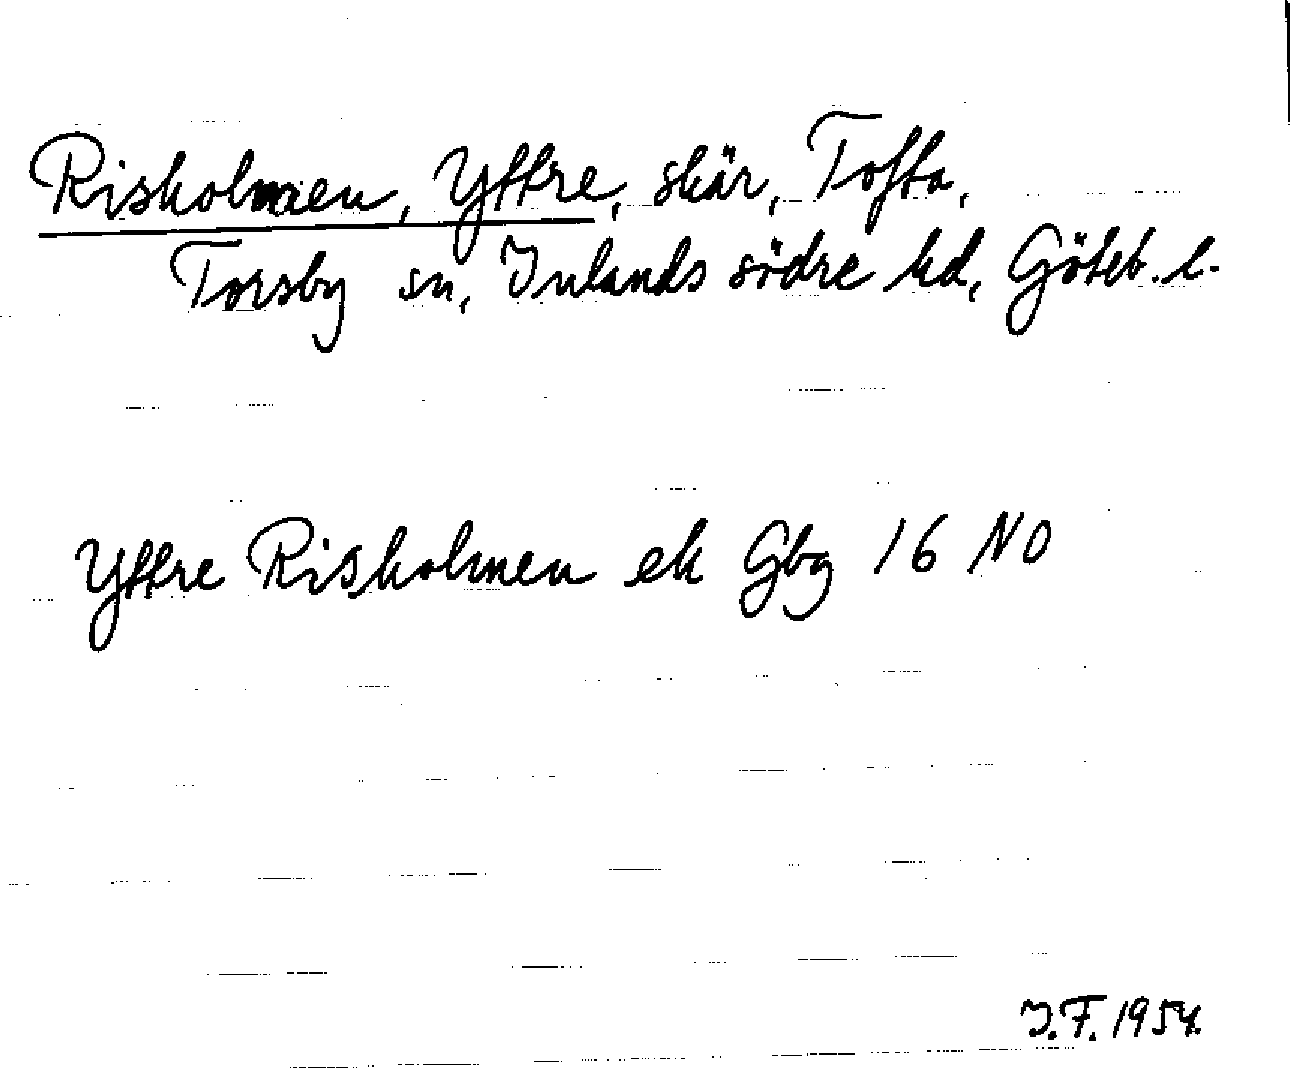 Risholmen, Yttre, skär, Tofta,
Torsby sn, Inlands södre hd, Göteb. l.
Yttre Risholmen ek Gbg 16 NO
I.F. 1954.